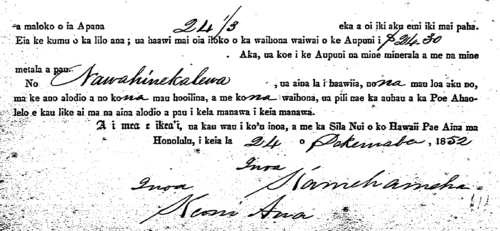 a maloko o ia Apana 24 1/3 eka a oi iki aku emi iki mai paha.
Eia ke kumu o ka lilo ana; ua haawi mai oia iloko o ka waihona waiwai o ke Aupuni i $24.30
Aka, ua koe i ke Aupuni na mine minerala a me na mine
metala a pau.
No Nawahinekalewa, ua aina la i haawiia, nona mau loa aku no,
ma ke ano alodio a no kona mau hooilina, a me kona waihona, ua pili nae ka auhau a ka Poe Ahao-
lelo e kau like ai ma na aina alodio a pau i kela manawa i keia manawa.
A i mea e ikea'i, ua kau wau i ko'u inoa, a me ka Sila Nui o ko Hawaii Pae Aina ma
Honolulu, i keia la 24 o Dekemaba, 1852
Inoa Kamehameha
Inoa Keoni Ana